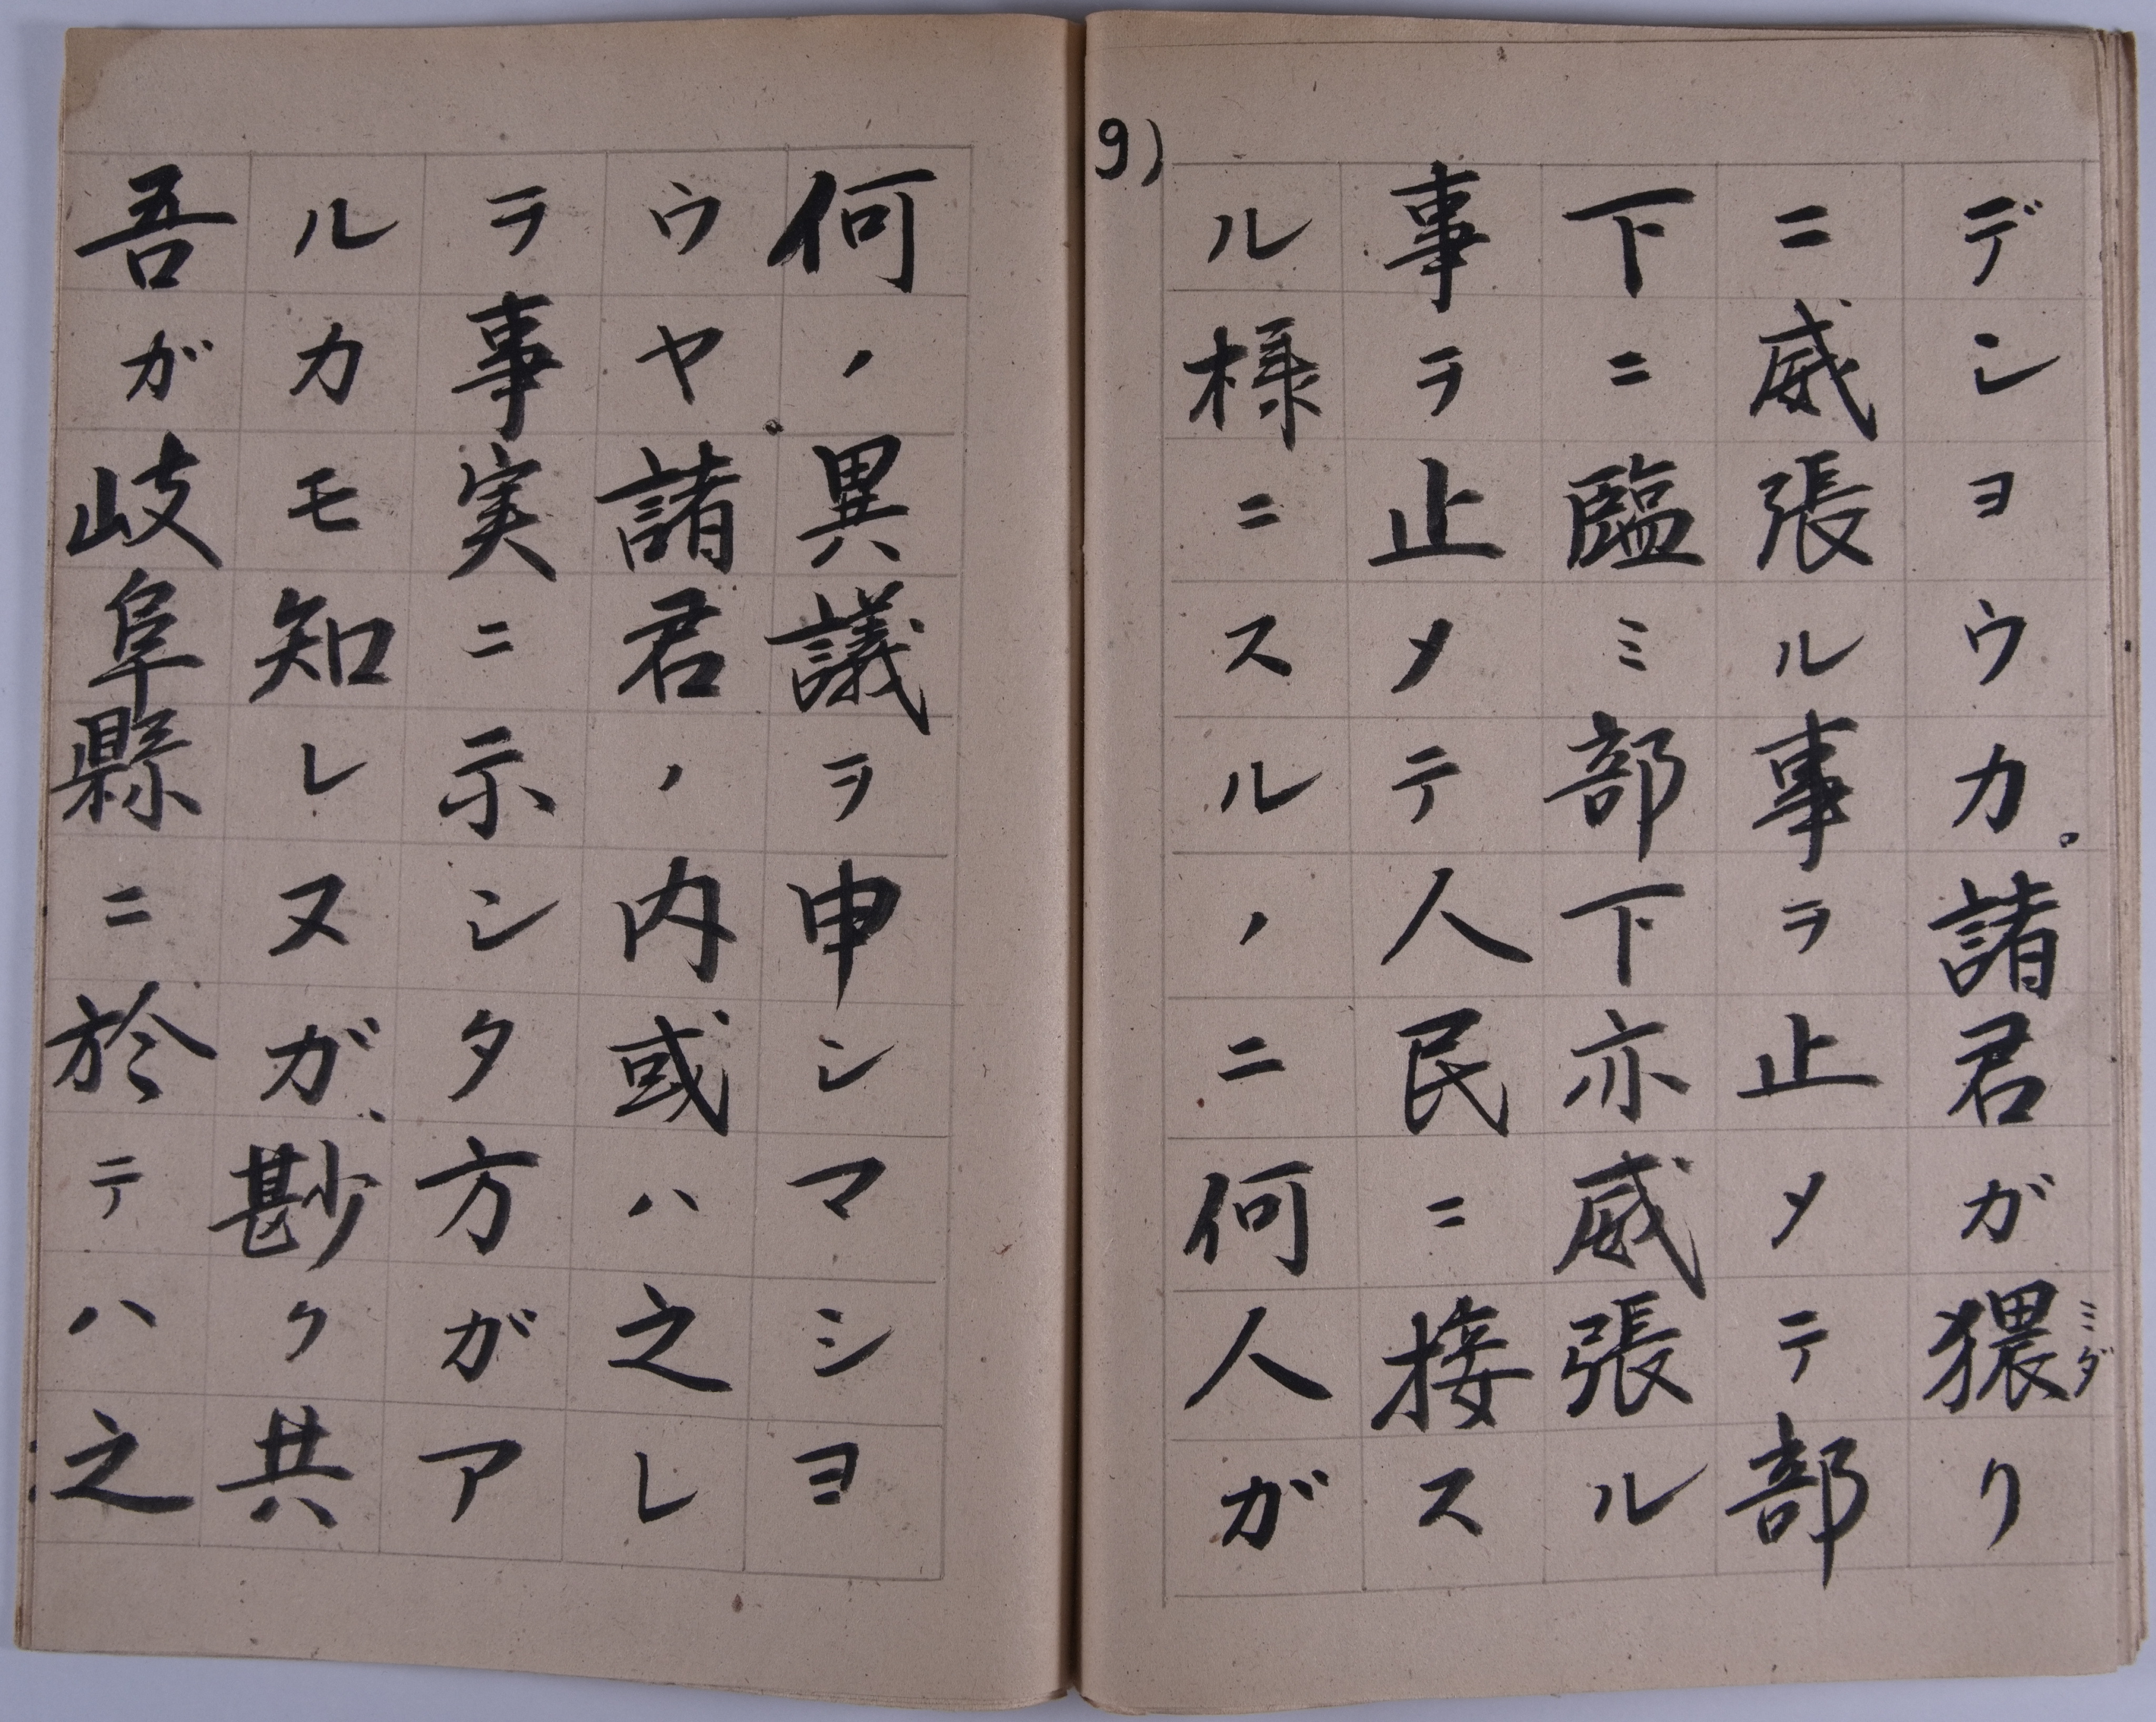 デショウカ。諸君ガ猥リ
ミダ
ニ威張ル事ヲ止メテ部
下ニ臨ミ部下亦威張ル
事ヲ止メテ人民ニ接ス
ル様ニスルノニ何人ガ
9)
何ノ異議ヲ申シマショ
ウヤ。諸君ノ内或ハ之レ
ヲ事実ニ示シタ方ガア
ルカモ知レヌガ、尠ク共
吾ガ岐阜縣ニ於テハ之